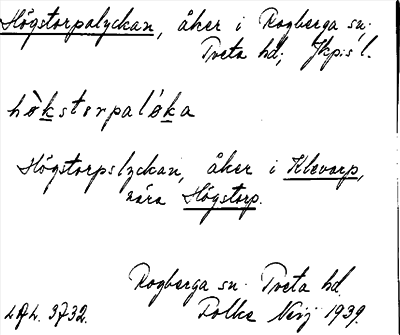 Högstorpalyckan, åker i Rogberga sn.
Tveta hd; Jkp:s l.
hòkstorpalóka
Högstorpslyckan, åker i Klevarp,
nära Högstorp.
Rogberga sn. Tveta hd.
Folke Neij 1939.